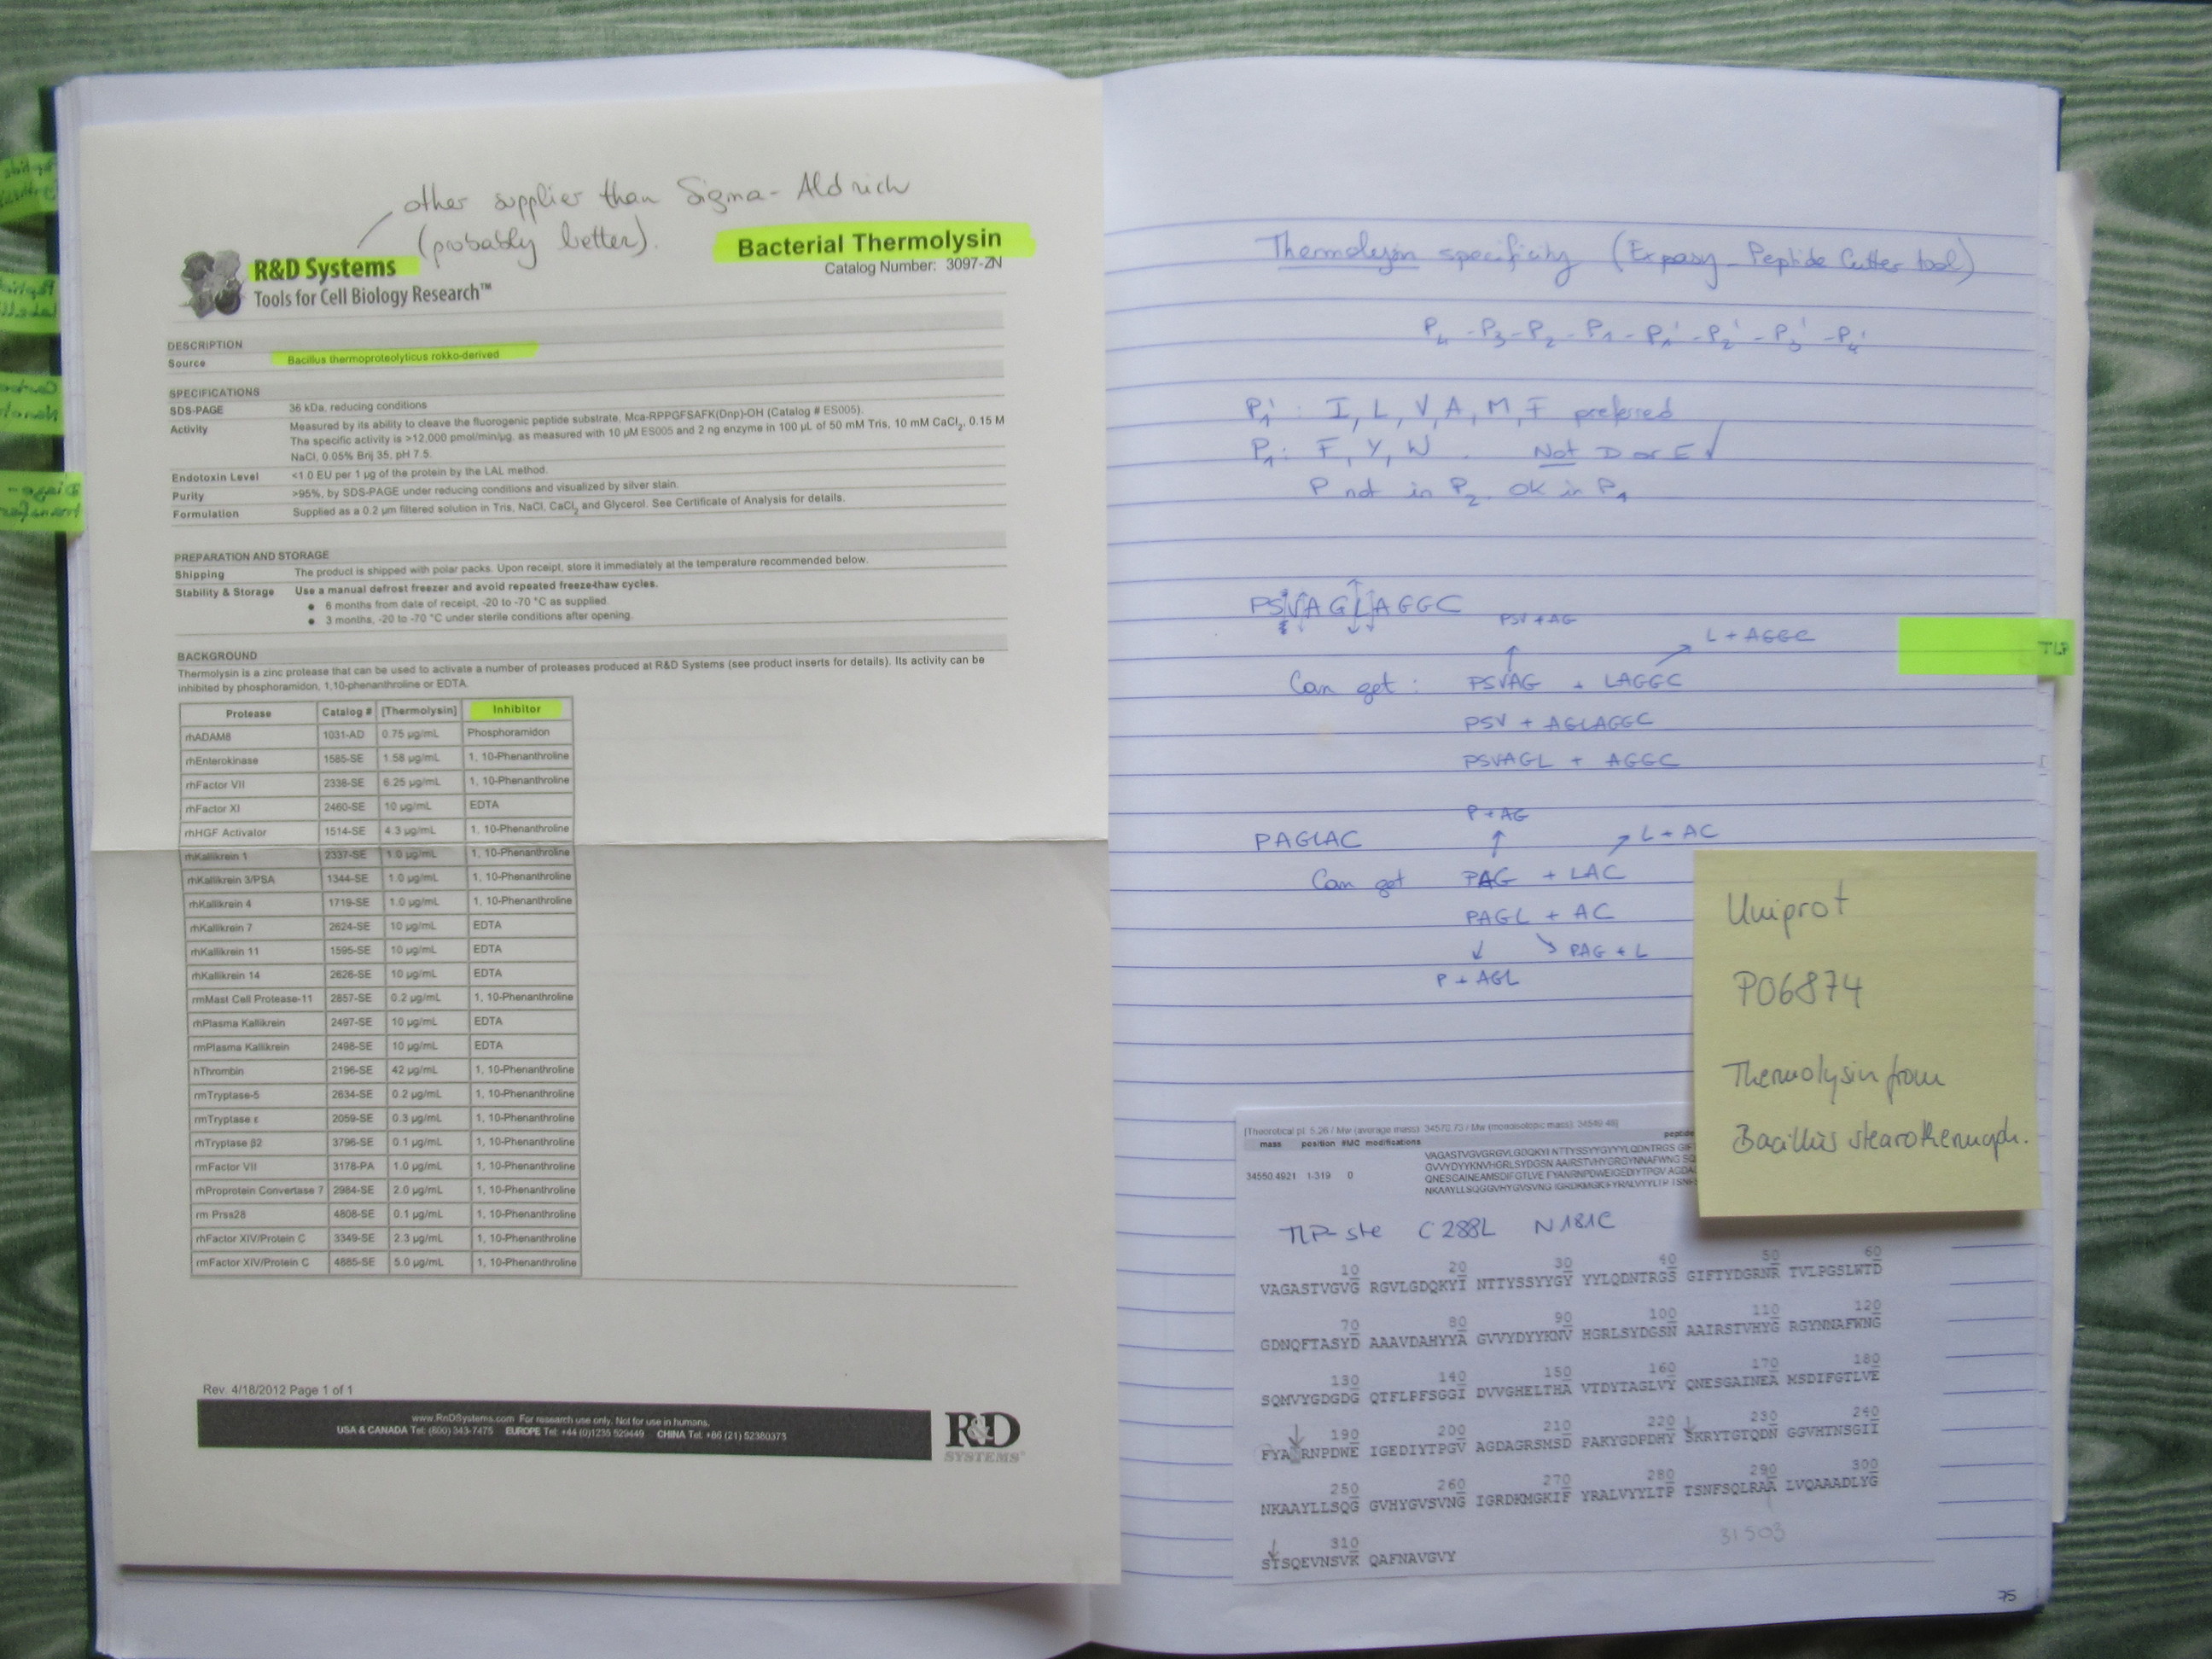 other supplier than Sigma-Aldrich
(probably better).
R&D Systems
Tools for Cell Biology Research™
Bacterial Thermolysin
Catalog Number: 3097-ZN
DESCRIPTION
Source Bacillus thermoproteolyticus rokko-derived
SPECIFICATIONS
SDS-PAGE 36 kDa, reducing conditions
Activity Measured by its ability to cleave the fluorogenic peptide substrate, Mca-RPPGFSAFK(Dnp)-OH (Catalog # ES005).
The specific activity is >12,000 pmol/min/µg, as measured with 10 µM ES005 and 2 ng enzyme in 100 µL of 50 mM Tris, 10 mM CaCl2, 0.15 M
NaCl, 0.05% Brij 35, pH 7.5.
Endotoxin Level <1.0 EU per 1 µg of the protein by the LAL method.
Purity >95%, by SDS-PAGE under reducing conditions and visualized by silver stain.
Formulation Supplied as a 0.2 µm filtered solution in Tris, NaCl, CaCl2 and Glycerol. See Certificate of Analysis for details.
PREPARATION AND STORAGE
Shipping The product is shipped with polar packs. Upon receipt, store it immediately at the temperature recommended below.
Stability & Storage Use a manual defrost freezer and avoid repeated freeze-thaw cycles.
● 6 months from date of receipt, -20 to -70 °C as supplied.
● 3 months, -20 to -70 °C under sterile conditions after opening.
BACKGROUND
Thermolysin is a zinc protease that can be used to activate a number of proteases produced at R&D Systems (see product inserts for details). Its activity can be
inhibited by phosphoramidon, 1,10-phenanthroline or EDTA.
Protease Catalog # [Thermolysin] Inhibitor
rhADAM8 1031-AD 0.75 µg/mL Phosphoramidon
rhEnterokinase 1585-SE 1.58 µg/mL 1, 10-Phenanthroline
rhFactor VII 2338-SE 6.25 µg/mL 1, 10-Phenanthroline
rhFactor XI 2460-SE 10 µg/mL EDTA
rhHGF Activator 1514-SE 4.3 µg/mL 1, 10-Phenanthroline
rhKallikrein 1 2337-SE 1.0 µg/mL 1, 10-Phenanthroline
rhKallikrein 3/PSA 1344-SE 1.0 µg/mL 1, 10-Phenanthroline
rhKallikrein 4 1719-SE 1.0 µg/mL 1, 10-Phenanthroline
rhKallikrein 7 2624-SE 10 µg/mL EDTA
rhKallikrein 11 1595-SE 10 µg/mL EDTA
rhKallikrein 14 2626-SE 10 µg/mL EDTA
rmMast Cell Protease-11 2857-SE 0.2 µg/mL 1, 10-Phenanthroline
rhPlasma Kallikrein 2497-SE 10 µg/mL EDTA
rmPlasma Kallikrein 2498-SE 10 µg/mL EDTA
hThrombin 2196-SE 42 µg/mL 1, 10-Phenanthroline
rmTryptase-5 2634-SE 0.2 µg/mL 1, 10-Phenanthroline
rmTryptase ε 2059-SE 0.3 µg/mL 1, 10-Phenanthroline
rhTryptase β2 3796-SE 0.1 µg/mL 1, 10-Phenanthroline
rmFactor VII 3178-PA 1.0 µg/mL 1, 10-Phenanthroline
rhProprotein Convertase 7 2984-SE 2.0 µg/mL 1, 10-Phenanthroline
rm Prss28 4808-SE 0.1 µg/mL 1, 10-Phenanthroline
rhFactor XIV/Protein C 3349-SE 2.3 µg/mL 1, 10-Phenanthroline
rmFactor XIV/Protein C 4885-SE 5.0 µg/mL 1, 10-Phenanthroline
Rev. 4/18/2012 Page 1 of 1
www.RnDSystems.com For research use only. Not for use in humans.
USA & CANADA Tel: (800) 343-7475 EUROPE Tel: +44 (0)1235 529449 CHINA Tel: +86 (21) 52380373
R&D
SYSTEMS
Thermolysin specificity (Expasy - Peptide Cutter tool)
P4 - P3 - P2 - P1 - P1' - P2' - P3' - P4'
P1': I, L, V, A, M, F preferred
P1: F, Y, W. Not D or E √
P not in P2. OK in P1
PSVAGLAGGC
PSV + AG
L + AGGC
Can get: PSVAG + LAGGC
PSV + AGLAGGC
PSVAGL + AGGC
P + AG
PAGLAC
L + AC
Can get PAG + LAC
PAGL + AC
PAG + L
P + AGL
TLP
Uniprot
P06874
Thermolysin from
Bacillus stearothermoph.
[Theoretical pI: 5.26 / Mw (average mass): 34570.73 / Mw (monoisotopic mass): 34549.48]
mass position #MC modifications peptide
34550.4921 1-319 0
VAGASTVGVGRGVLGDQKYI NTTYSSYYGYYYLQDNTRGS GIFT
GVVYDYYKNVHGRLSYDGSN AAIRSTVHYGRGYNNAFWNG SQ
QNESGAINEAMSDIFGTLVE FYANRNPDWEIGEDIYTPGV AGDA
NKAAYLLSQGGVHYGVSVNG IGRDKMGKIFYRALVYYLTP TSNFS
TLP-ste C288L N181C
10 20 30 40 50 60
VAGASTVGVG RGVLGDQKYI NTTYSSYYGY YYLQDNTRGS GIFTYDGRNR TVLPGSLWTD
70 80 90 100 110 120
GDNQFTASYD AAAVDAHYYA GVVYDYYKNV HGRLSYDGSN AAIRSTVHYG RGYNNAFWNG
130 140 150 160 170 180
SQMVYGDGDG QTFLPFSGGI DVVGHELTHA VTDYTAGLVY QNESGAINEA MSDIFGTLVE
190 200 210 220 230 240
FYA RNPDWE IGEDIYTPGV AGDAGRSMSD PAKYGDPDHY SKRYTGTQDN GGVHTNSGII
250 260 270 280 290 300
NKAAYLLSQG GVHYGVSVNG IGRDKMGKIF YRALVYYLTP TSNFSQLRAA LVQAAADLYG
310
STSQEVNSVK QAFNAVGVY
31503
75